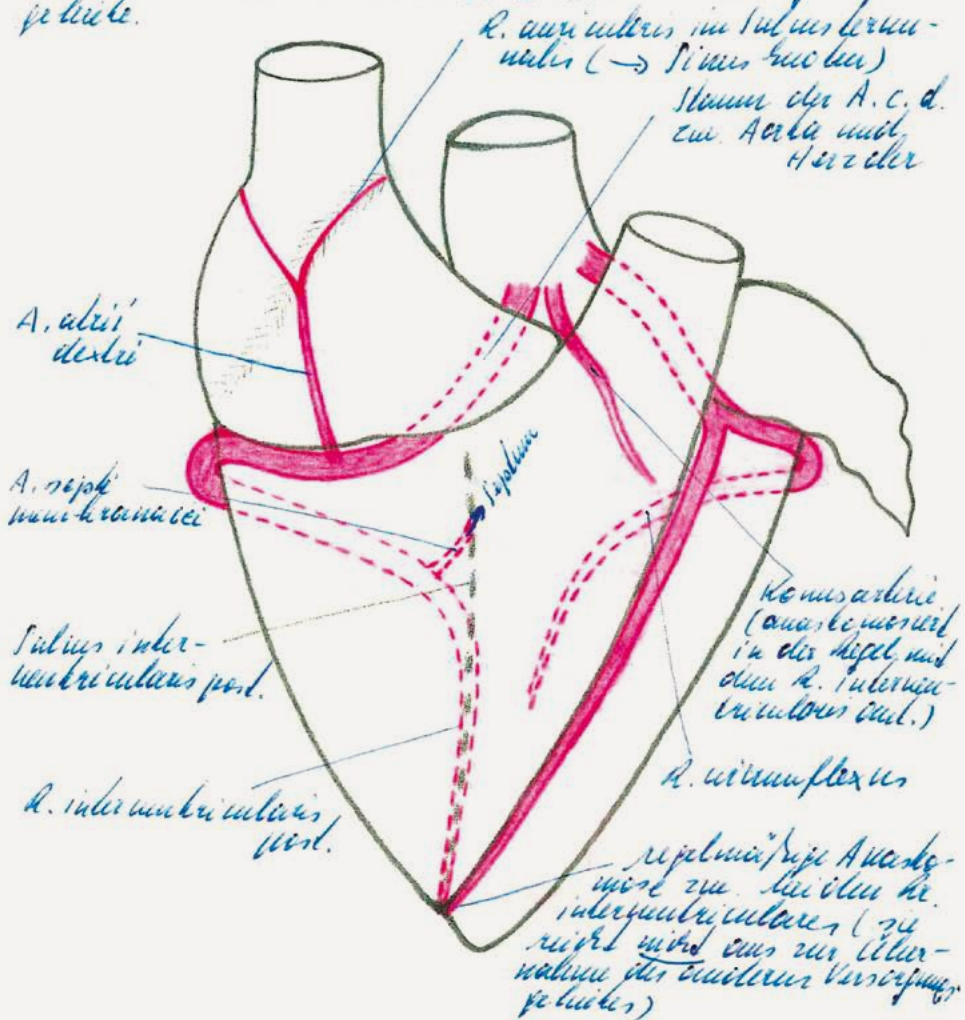 gebiete.
R. auricularis im Sulcus termi-
nalis (→ Sinusknoten)
Stamm der A. c. d.
zw. Aorta und
Herzohr
A. atrii
dextri
A. septi
membranacei
Septum
Sulcus inter-
ventricularis post.
R. interventricularis
post.
Konusarterie
(anastomosiert
in der Regel mit
dem R. interven-
tricularis ant.)
R. circumflexus
regelmäßige Anasto-
mose zw. beiden Rr.
interventriculares (sie
reicht nicht aus zur Über-
nahme des anderen Versorgungs-
gebietes)